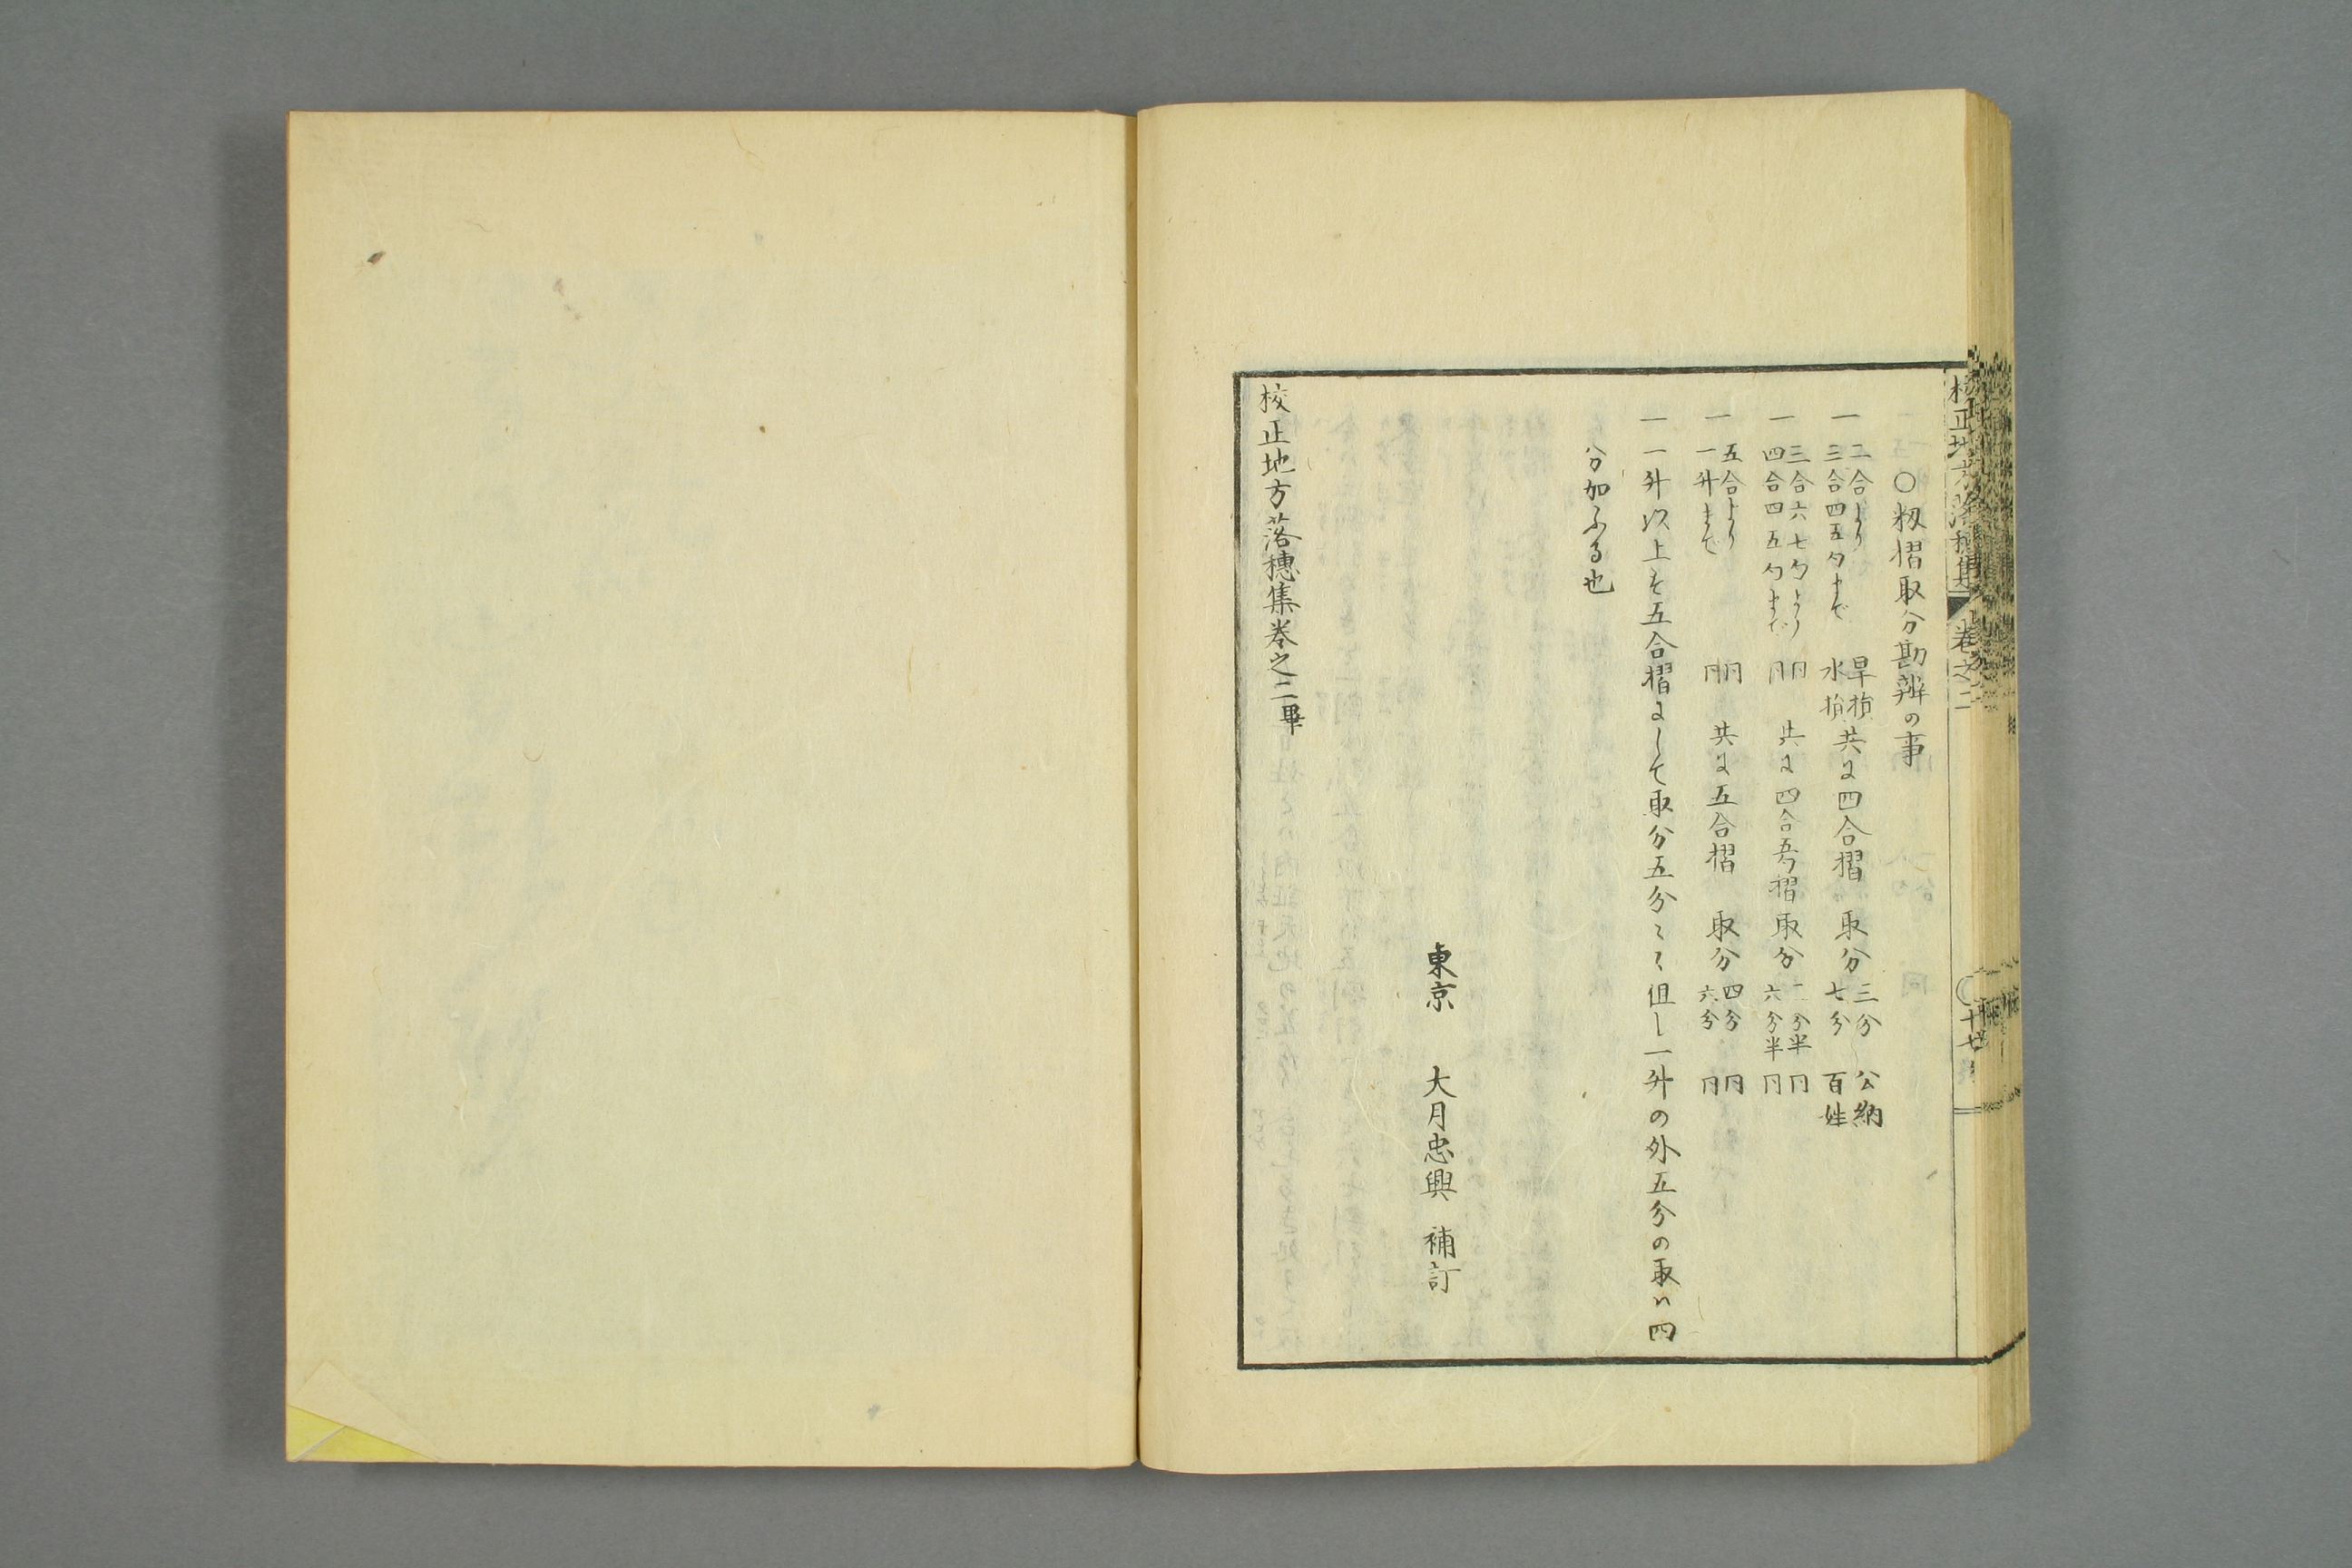 校正地方落穂集 巻之二
○籾摺取分勘辨の事
一 二合より 旱損
三合四五勺まで 水損 共に四合摺 取分 三分 公納
七分 百姓
一 三合六七勺より 同
四合四五勺まで 同 共に四合五勺摺 取分 三分半 同
六分半 同
一 五合より 同
一升まで 同 共に五合摺 取分 四分 同
六分 同
一 一升以上を五合摺にして取分五分〻〻但し一升の外五分の取ハ四
分加ふる也
東京 大月忠興 補訂
校正地方落穂集巻之二畢